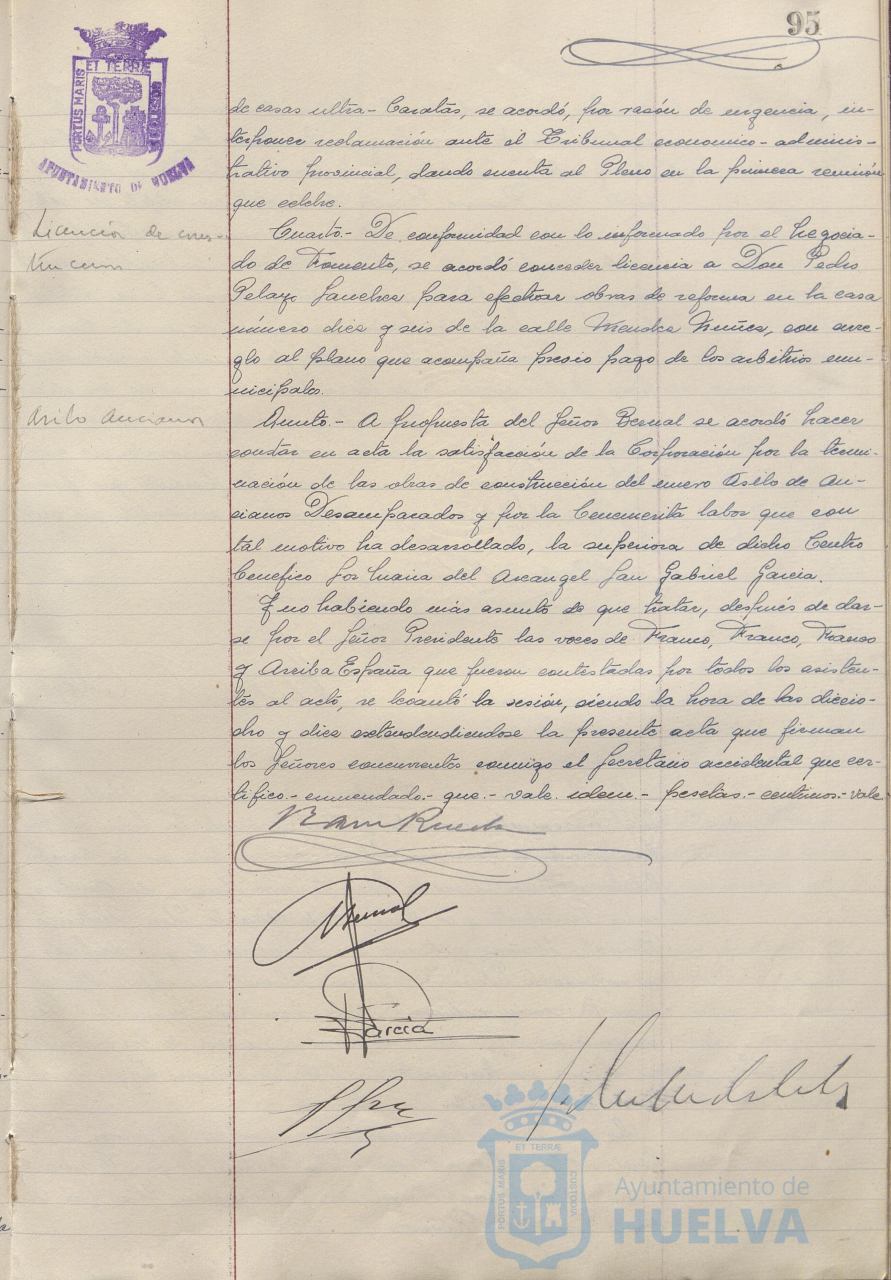 95
PORTUS MARIS ET TERRÆ CUSTODIA
AYUNTAMIENTO DE HUELVA
de casas ultra-baratas, se acordó, por razón de urgencia, in-
terponer reclamación ante el Tribunal economico-adminis-
trativo provincial, dando cuenta al Pleno en la primera reunión
que celebre.
Licencia de cons-
truccion
Cuarto.- De conformidad con lo informado por el Negocia-
do de Fomento, se acordó conceder licencia a Don Pedro
Pelayo Sanchez para efectuar obras de reforma en la casa
número diez y seis de la calle Mendez Nuñez, con arre-
glo al plano que acompaña previo pago de los arbitrios mu-
nicipales.
Asilo Ancianos
Quinto.- A propuesta del Señor Bernal se acordó hacer
constar en acta la satisfacción de la Corporación por la termi-
nación de las obras de construcción del nuevo Asilo de An-
cianos Desamparados y por la benemerita labor que con
tal motivo ha desarrollado, la superiora de dicho Centro
benefico Sor Maria del Arcangel San Gabriel Garcia.
Y no habiendo más asunto de que tratar, después de dar-
se por el Señor Presidente las voces de Franco, Franco, Franco
y Arriba España que fueron contestadas por todos los asisten-
tes al acto, se levantó la sesión, siendo la hora de las diecio-
cho y diez extendiendiendose la presente acta que firman
los Señores concurrentes conmigo el Secretario accidental que cer-
tifico.- enmendado.- que.- vale. idem.- pesetas.- centimos.- vale
Garcia
PORTUS MARIS ET TERRÆ CUSTODIA
Ayuntamiento de
HUELVA